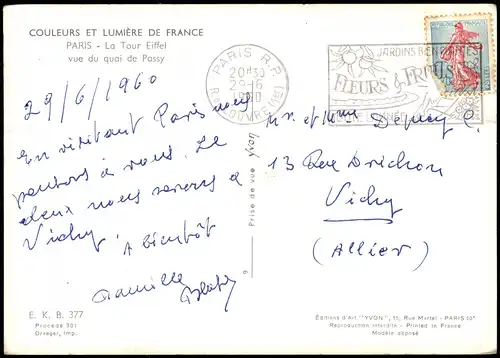 COULEURS ET LUMIÈRE DE FRANCE
PARIS - La Tour Eiffel
vue du quai de Passy
29/6/1960
En visitant Paris nous
pensons à vous. Le
deux nous serons à
Vichy.
A bientôt
Famille
E. K. B. 377
Procédé 301
Draeger, Imp.
Prise de vue yvon
9
PARIS R.P.
20H30
29-6
1960
R. DU LOUVRE (1er)
JARDINS
FLEURS & FRUITS
Mr. et Mme Depuy C.
13 Rue Drichon
Vichy
(Allier)
Éditions d'Art "YVON", 15, Rue Martel - PARIS 10e
Reproduction interdite - Printed in France
Modèle déposé